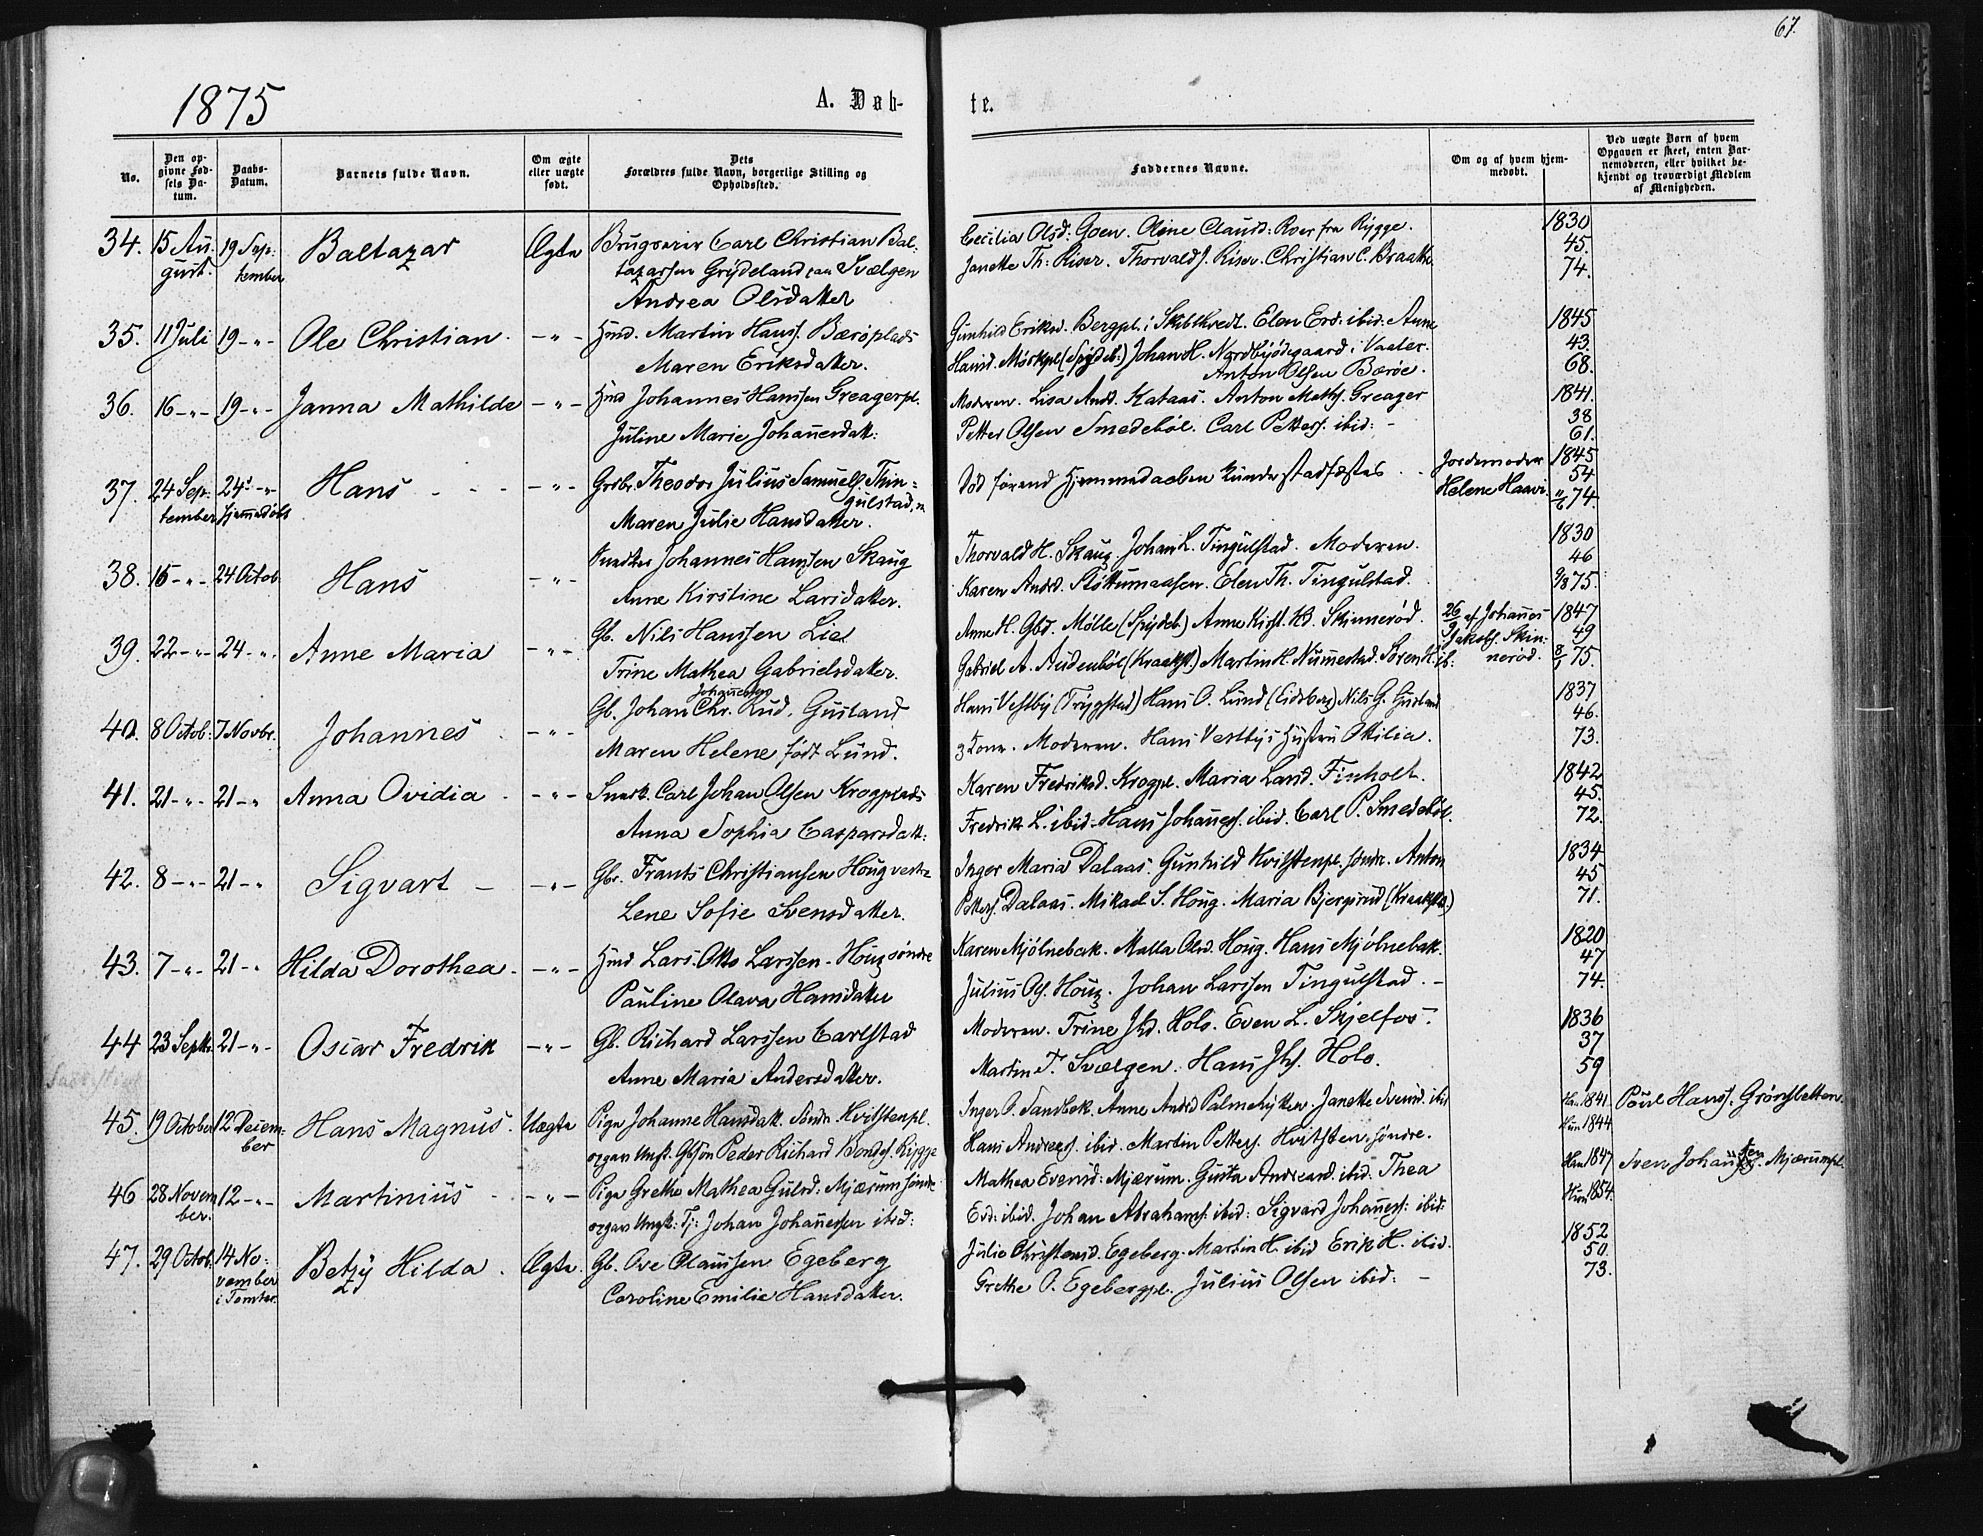 67.
1875
A. Døb-
te.
No.
Den op-
givne Fød-
sels Da-
tum.
Daabs-
Datum.
Barnets fulde Navn.
Om ægte
eller uægte
født.
Dets
Forældres fulde Navn, borgerlige Stilling og
Opholdssted.
Faddernes Navne.
Om og af hvem hjem-
medøbt.
Ved uægte Børn af hvem
Opgaven er skeet, enten Bar-
nemoderen, eller hvilket be-
kjendt og troværdigt Medlem
af Menigheden.
34. 15 Au- 19 Sep- Baltazar Ægte Brugseier Carl Christian Bal-
gust. tember tazarsen Grydeland Svælgen
Andrea Olsdatter
Cecilia Olsd: Goen. Oline Clausd: Roer fra Rygge. 1830
Janette Th: Riser. Thorvald J. Riser. Christian C. Braatte 45.
74.
35. 11 Juli 19 -"- Ole Christian. -"- Hmd. Martin Hanss. Bærøplads
Maren Eriksdatter.
Gunhild Eriksd. Bergpl. i Skibthvedt. Elen Erd: ibid: Anne 1845
Hansd. Mørkpl (Spydeb.) Johan H. Nordbyødegaard i Vaaler. 43.
Anton Olsen Bærøe. 68.
36. 16 -"- 19 -"- Janna Mathilde -"- Hmd Johannes Hanssen Greagerpl.
Juline Marie Johannesdatt:
Moderen. Lisa Andr. Kataas. Anton Maths. Greager 1841.
Petter Olsen Smedebøl. Carl Petters. ibid: - 38
61.
37. 24 Sep- 24 -"- Hans -"- Grbr. Theodor Julius Samuels. Thin-
tember Hjemmedøbt gulstad,
Maren Julie Hansdatter.
Død førend Hjemmedaaben kunde stadfæstes. Jordemoder 1845
Helene Haavi. 54
74.
38. 15 -"- 24 Octob Hans -"- Johannes Hanssen Skaug
Anne Kirstine Larsdatter.
Thorvald H. Skaug. Johan L. Tingulstad. Moderen. 1830
Karen Andrd. Elen Th. Tingulstad. 46
9/8 75.
39. 22 -"- 24 -"- Anne Maria -"- Gb. Nils Hanssen Lie
Trine Mathea Gabrielsdatter.
Anne H. Gbd. Mølle (Spydeb.) Anne Kirst. Hd. Skinnerød. 26/9 af Johannes 1847
Gabriel A. Audenbøl (Kraakst.) Martin H. Nummestad. Søren H. ib: Jakobs. Skin- 49
nerød. 8/1 75.
40. 8 Octob: 7 Novbr. Johannes -"- Gb. Johan Chr. Johannesen Rud. Gusland
Maren Helene født Lund.
Hans Vestby (Trygstad) Hans O. Lund (Eidsberg) Nils G. Gusland 1837
Moderen. Hans Vestbys Hustru Ottilia. 46.
73.
41. 21 -"- 21 -"- Anna Ovidia -"- Carl Johan Olsen Krogplads
Anna Sophia Caspersdatt:
Karen Fredriksd. Krogpl. Maria Larsd. Finholt. 1842
Fredrik L. ibid. Hans Johanness. ibid. Carl P. Smedebøl. 45.
72.
42. 8 -"- 21 -"- Sigvart -"- Gbr. Frants Christiansen Houg vestre
Lene Sofie Svensdatter.
Inger Maria Dalaas. Gunhild Hvitstenpl. søndr. Anton 1834
Petters. Dalaas. Mikael S. Houg. Maria Bjergerud (Kraakstd.) 45
71.
43. 7 -"- 21 -"- Hilda Dorothea. -"- Hmd Lars Otto Larssen - Houg søndre
Pauline Olava Hansdatter
Karen Mjølnebak. Malla Olsd. Houg. Hans Mjølnebak. 1820
Julius Ols. Houg. Johan Larssen Tingulstad. - 47
74.
44 23 Septbr. 21 -"- Oscar Fredrik -"- Gb. Richard Larssen Carlstad
Anne Maria Andersdatter.
Moderen. Trine Jhd. Holo. Even L. Skjelfos. 1836
Martin T. Svælgen. Hans Jhs. Holo. 37
59
45. 19 October 12 Decem- Hans Magnus. Uægte Pige Johanne Hansdatt. Søndr. Hvitstenpl.
ber og gaardm. Peder Richard Bondes. Rygge
Inger P. Sandbek. Anne Andrd Palmehytten. Janette Svend. ibid Han 1841. Poul Hanss. Grønsletten.
Hans Andreass. ibid. Martin Petters. Hvitsten søndre. Hun 1844
46 28 Novem 12 -"- Martinius -"- Pige Grethe Mathea Gulsd: Mjærum søndre
ber. og gaardm. Tj: Johan Johannessen ibid:
Mathea Evensd: Mjærum. Gusta Andreasd. ibid: Thea Han 1847 Sven Johannessen. Mjærumpl.
Ersd: ibid. Johan Abrahams. ibid: Sigvard Johanness: ibid: Hun 1854.
47. 29 Octob. 14 No- Betzy Hilda. Ægte. Gb. Ove Olaussen Egeberg
vember Caroline Emilie Hansdatter.
i Tomter.
Julie Christensd. Egeberg. Martin H. ibid Erik H. ibid. 1852
Grethe O. Egebergpl. Julius Olsen ibid: - 50.
73.